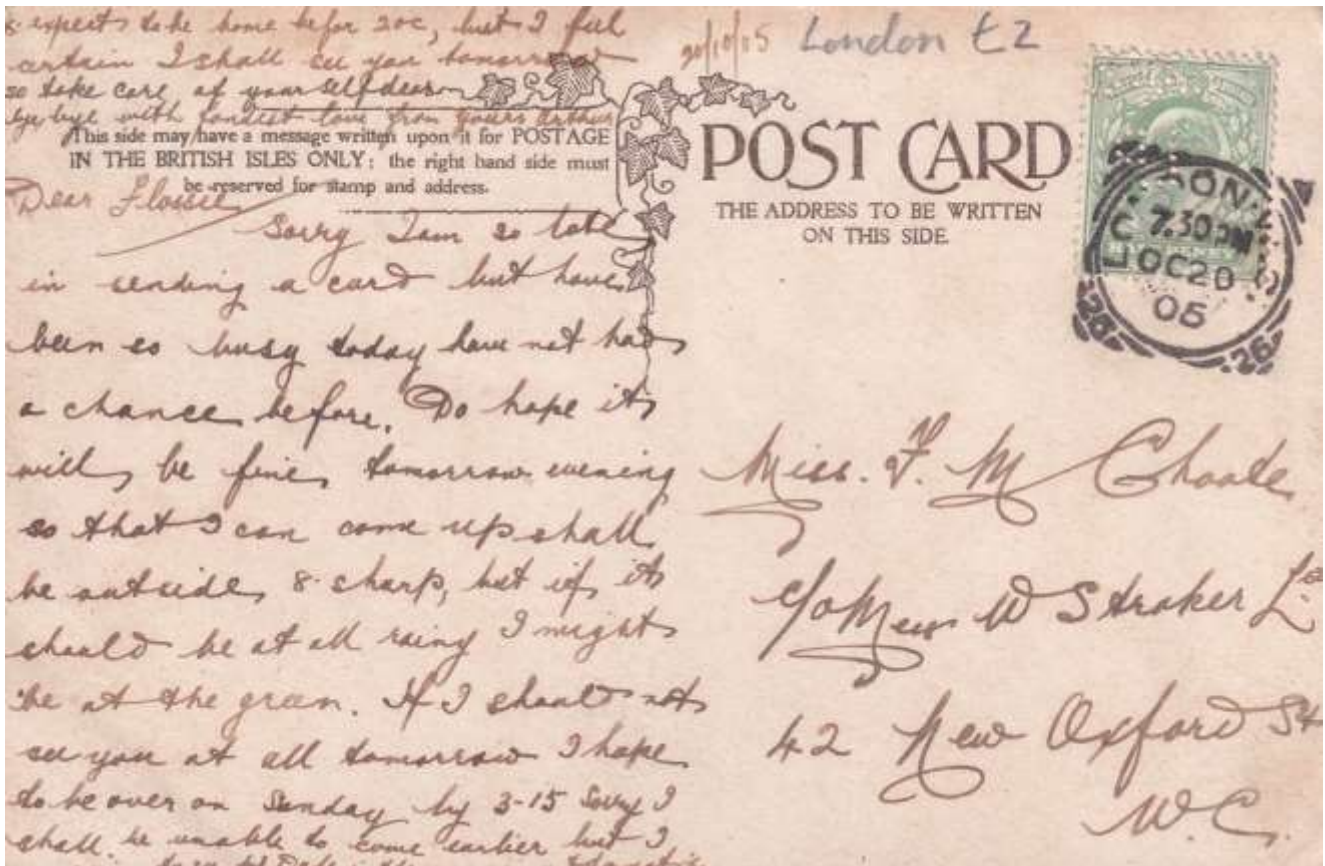 & expects to be home befor 20c, but I feel
certain I shall see you tomorrow
so take care of yourself dear
bye bye with fondest love from yours Arthur
This side may have a message written upon it for POSTAGE
IN THE BRITISH ISLES ONLY: the right hand side must
be reserved for stamp and address.
Dear Flossie
Sorry I am so late
in sending a card but have
been so busy today have not had
a chance before. Do hope it
will be fine tomorrow evening
so that I can come up shall
be outside 8 sharp, but if it
should be at all rainy I might
be at the green. If I should not
see you at all tomorrow I hope
to be over on Sunday by 3-15 Sorry I
shall be unable to come earlier but I
20/10/05 London £2
POST CARD
THE ADDRESS TO BE WRITTEN
ON THIS SIDE.
7.30PM
OC 20
05
26 26
Miss. F. M Choate
c/o Mess W Straker Ld
42 New Oxford St
W.C.